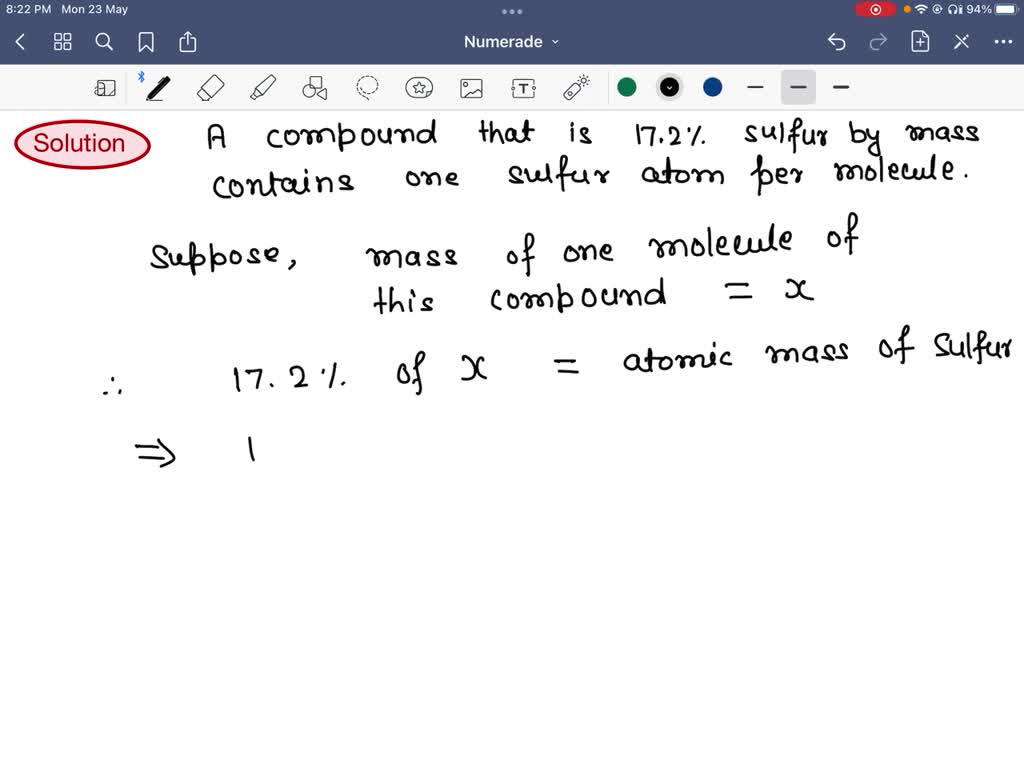 8:22 PM Mon 23 May 94%
Numerade
Solution
A compound that is 17.2% sulfur by mass
contains one sulfur atom per molecule.
Suppose, mass of one molecule of
this compound = x
∴ 17.2% of x = atomic mass of Sulfur
⇒ 1